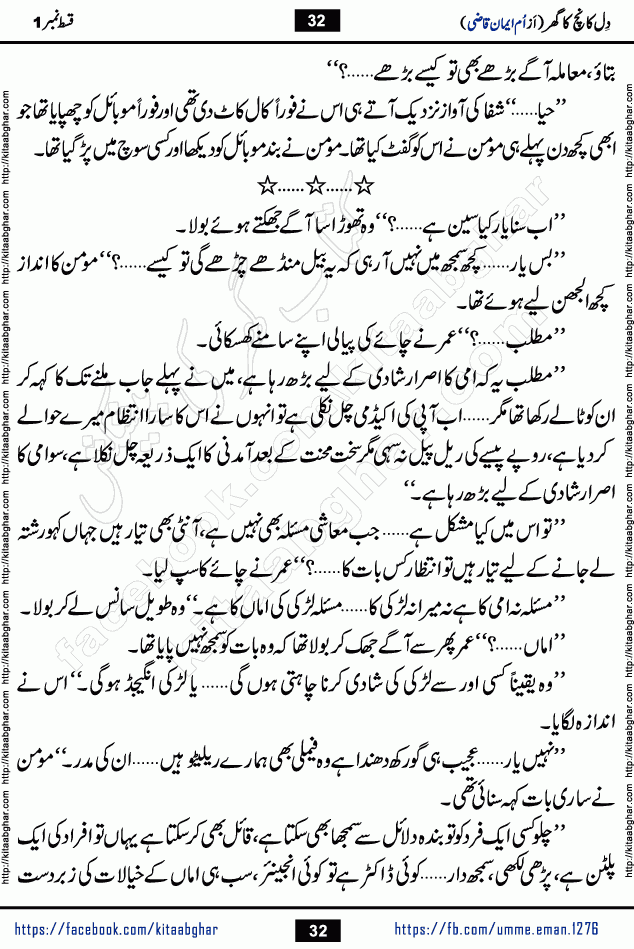 دِل کانچ کا گھر (از اُم ایمان قاضی) 32 قسط نمبر 1
بتاؤ، معاملہ آگے بڑھے بھی تو کیسے بڑھے......؟‘‘
’’حیا......‘‘ شفا کی آواز نزدیک آتے ہی اس نے فوراً کال کاٹ دی تھی اور فوراً موبائل کو چھپایا تھا جو
ابھی کچھ دن پہلے ہی مؤمن نے اس کو گفٹ کیا تھا۔ مؤمن نے بند موبائل کو دیکھا اور کسی سوچ میں پڑ گیا تھا۔
☆......☆......☆
’’اب سنا یار کیا سین ہے......؟‘‘ وہ تھوڑا سا آگے جھکتے ہوئے بولا۔
’’بس یار...... کچھ سمجھ میں نہیں آ رہی کہ یہ بیل منڈھے چڑھے گی تو کیسے......؟‘‘ مؤمن کا انداز
کچھ الجھن لیے ہوئے تھا۔
’’مطلب......؟‘‘ عمر نے چائے کی پیالی اپنے سامنے کھسکائی۔
’’مطلب یہ کہ امی کا اصرار شادی کے لیے بڑھ رہا ہے، میں نے پہلے جاب ملنے تک کا کہہ کر
ان کو ٹالے رکھا تھا مگر...... اب آپی کی اکیڈمی چل نکلی ہے تو انہوں نے اس کا سارا انتظام میرے حوالے
کر دیا ہے، روپے پیسے کی ریل پیل نہ سہی مگر سخت محنت کے بعد آمدنی کا ایک ذریعہ چل نکلا ہے، سو امی کا
اصرار شادی کے لیے بڑھ رہا ہے۔‘‘
’’تو اس میں کیا مشکل ہے...... جب معاشی مسئلہ بھی نہیں ہے، آنٹی بھی تیار ہیں جہاں کہو رشتہ
لے جانے کے لیے تیار ہیں تو انتظار کس بات کا......؟‘‘ عمر نے چائے کا سپ لیا۔
’’مسئلہ نہ امی کا ہے نہ میرا نہ لڑکی کا...... مسئلہ لڑکی کی اماں کا ہے۔‘‘ وہ طویل سانس لے کر بولا۔
’’اماں......؟‘‘ عمر پھر سے آگے جھک کر بولا تھا کہ وہ بات کو سمجھ نہیں پایا تھا۔
’’وہ یقیناً کسی اور سے لڑکی کی شادی کرنا چاہتی ہوں گی...... یا لڑکی انگیجڈ ہوگی۔‘‘ اس نے
اندازہ لگایا۔
’’نہیں یار...... عجیب ہی گورکھ دھندا ہے وہ فیملی بھی ہمارے ریلیٹو ہیں...... ان کی مدر۔‘‘ مؤمن
نے ساری بات کہہ سنائی تھی۔
’’چلو کسی ایک فرد کو تو بندہ دلائل سے سمجھا بھی سکتا ہے، قائل بھی کر سکتا ہے یہاں تو افراد کی ایک
پلٹن ہے، پڑھی لکھی، سمجھ دار...... کوئی ڈاکٹر ہے تو کوئی انجینئر، سب ہی اماں کے خیالات کی زبردست
https://facebook.com/kitaabghar 32 https://fb.com/umme.eman.1276
http://kitaabghar.com http://kitaabghar.com http://kitaabghar.com http://kitaabghar.com http://kitaabghar.com http://kitaabghar.com
http://kitaabghar.com http://kitaabghar.com http://kitaabghar.com http://kitaabghar.com http://kitaabghar.com http://kitaabghar.com